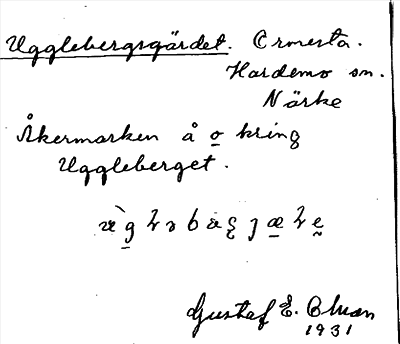 Ugglebergsgärdet. Ermesta.
Hardemo sn.
Närke
Åkermarken å o kring
Uggleberget.
Gustaf E.
1931